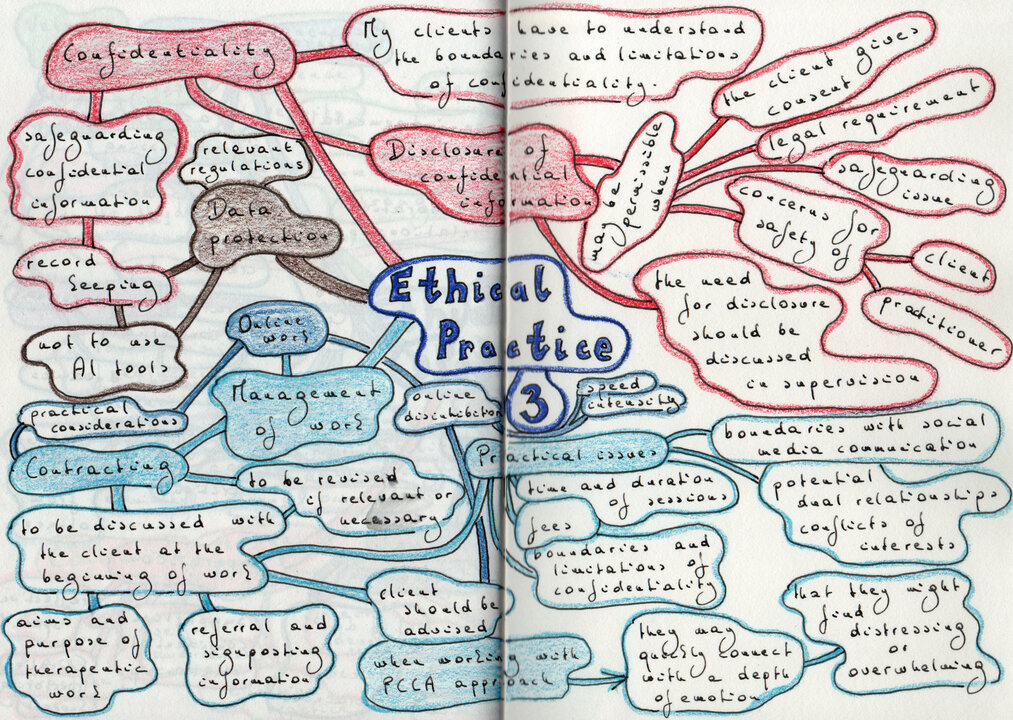 Confidentiality
My clients have to understand
the boundaries and limitations
of confidentiality.
safeguarding
confidential
information
Disclosure of
confidential
information
may be
permissible
when
the client gives
consent
legal requirement
safeguarding
issue
concerns for
safety of
client
practitioner
the need
for disclosure
should be
discussed
in supervision
relevant
regulations
Data
protection
record
keeping
not to use
AI tools
Ethical
Practice
3
Online
work
Management
of work
online
disinhibition
speed
intensity
practical
considerations
Contracting
to be revised
if relevant or
necessary
to be discussed with
the client at the
beginning of work
aims and
purpose of
therapeutic
work
referral and
signposting
information
Practical issues
boundaries with social
media communication
time and duration
of sessions
fees
potential
dual relationships
conflicts of
interests
boundaries and
limitations of
confidentiality
client
should be
advised
when working with
PCCA approach
they may
quickly connect
with a depth
of emotion
that they might
find
distressing
or
overwhelming